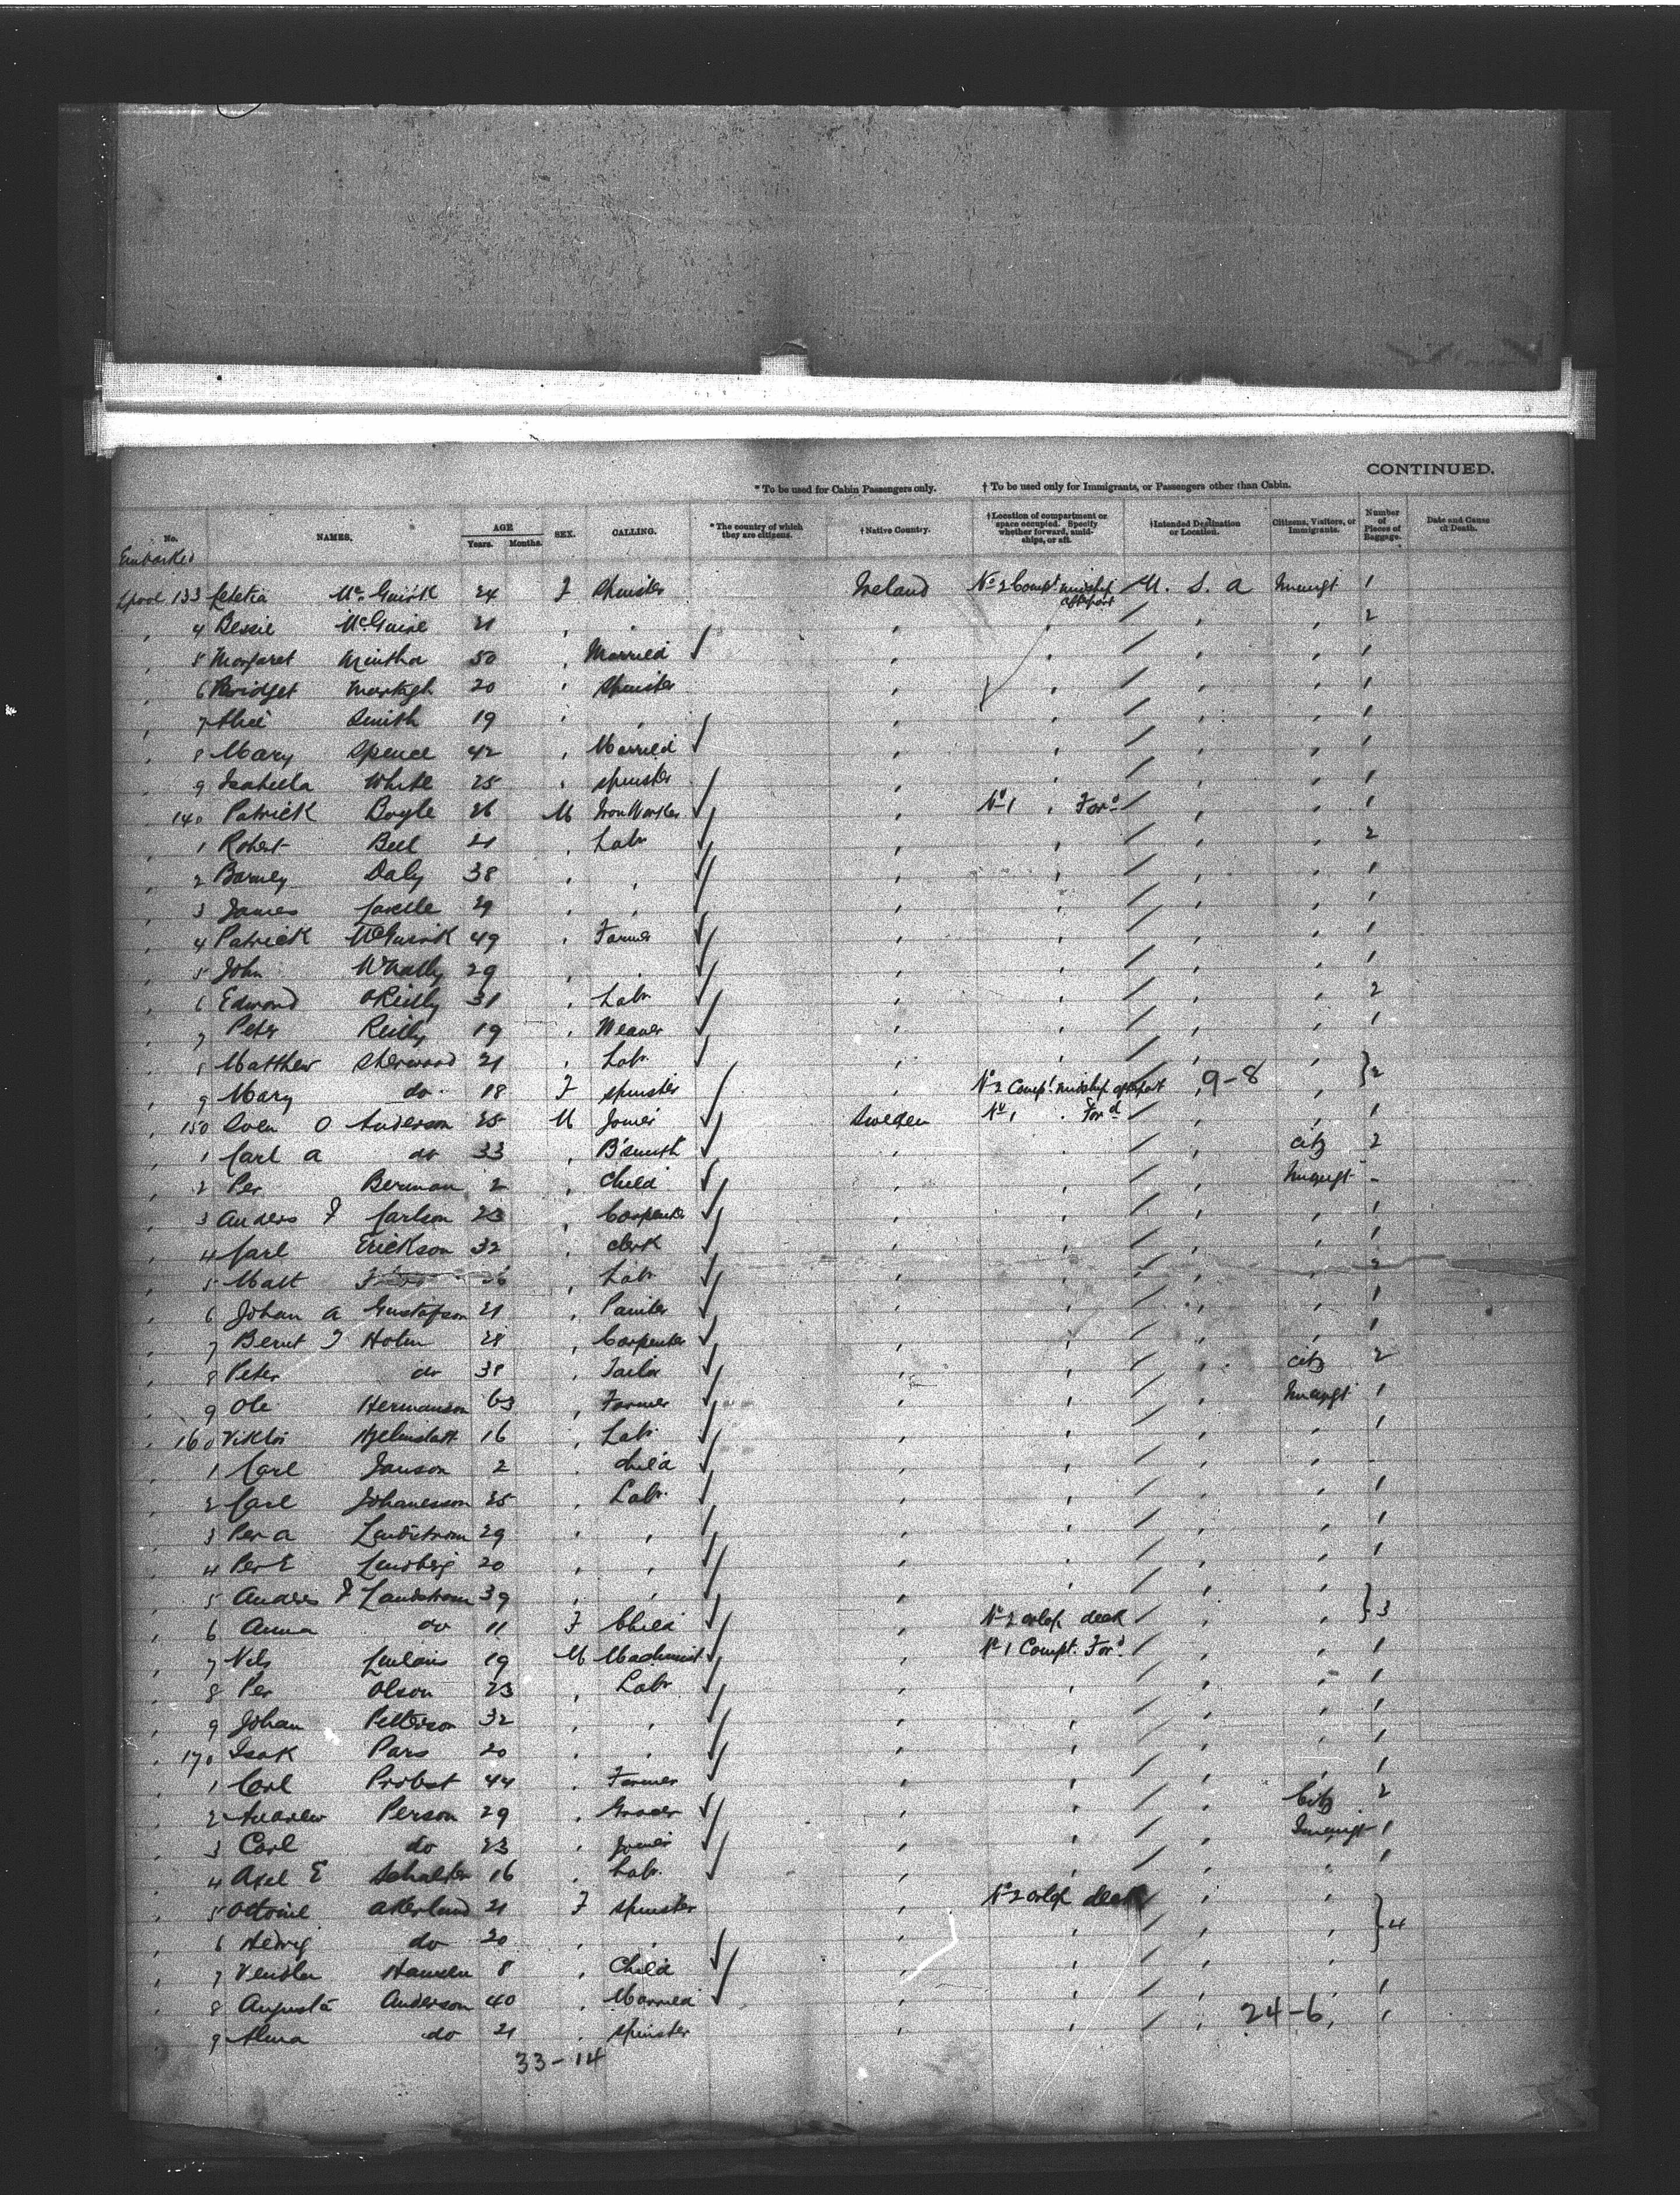 CONTINUED.
* To be used for Cabin Passengers only. † To be used only for Immigrants, or Passengers other than Cabin.
No. NAMES. AGE Years. Months. SEX. CALLING. * The country of which they are citizens. † Native Country. † Location of compartment or space occupied. Specify whether forward, amidships, or aft. † Intended Destination or Location. Citizens, Visitors, or Immigrants. Number of Pieces of Baggage. Date and Cause of Death.
Embarked
Lpool 133 Letetia McGuirk 24 F Spinster Ireland No 2 Compt midship aft part U. S. A Immigt 1
4 Bessie McGuire 21 , , , , , , 2
5 Margaret 50 , Married , , , , 1
6 Bridget Murtagh 20 , Spinster , , , , 1
7 Alice Smith 19 , , , , , , 1
8 Mary Spence 42 , Married , , , , 1
9 Isabella White 25 , spinster , , , , 1
140 Patrick Boyle 26 M Iron Worker , No 1 , Ford , , 1
1 Robert Bell 21 , Labr , , , , 2
2 Barney Daly 38 , , , , , , 1
3 James 29 , , , , , , 1
4 Patrick McGuirk 49 , Farmer , , , , 1
5 John 29 , , , , , , 1
6 Edmond OReilly 31 , Labr , , , , 2
7 Peter Reilly 19 , Weaver , , , , 1
8 Matthew Sherwood 21 , Labr , , , , } 2
9 Mary do 18 F spinster , No 2 Compt midship aft part , 9-8 ,
150 Sven O Anderson 25 M Joiner Sweden No 1 , Ford , , 1
1 Carl A do 33 , B'smith , , , Citz 2
2 Per Berman 2 , Child , , , Immigt -
3 Anders F Carlson 23 , Carpenter , , , , 1
4 Carl Erickson 32 , clerk , , , , 1
5 Matt , Labr , , , , 2
6 Johan A Gustafson 21 , Painter , , , , 1
7 Bernt J Holm 28 , Carpenter , , , , 1
8 Peter do 38 , Tailor , , , Citz 2
9 Ole Hermanson 63 , Farmer , , , Immigt 1
160 Viktor 16 , Labr , , , , 1
1 Carl Janson 2 , child , , , , -
2 Carl Johanesson 25 , Labr , , , , 1
3 Per A Lindstrom 29 , , , , , , 1
4 Per E Lindberg 20 , , , , , , 1
5 Andres F Landstrom 39 , , , , , , } 3
6 Anna do 11 F Child , No 2 orlop deck , ,
7 Nels 19 M Machinist , No 1 Compt. Ford , , 1
8 Per Olson 23 , Labr , , , , 1
9 Johan Petterson 32 , , , , , , 1
170 Isak Pars 20 , , , , , , 1
1 Carl Probst 44 , Farmer , , , , 1
2 Andrew Person 29 , Grocer , , , Citz 2
3 Carl do 23 , Joiner , , , Immigt 1
4 Axel E 16 , Labr , , , , 1
5 Akerlund 21 F spinster , No 2 orlop deck , , } 4
6 Hedvig do 20 , , , , , ,
7 Hansen 8 , Child , , , ,
8 Augusta Anderson 40 , Married , , , , 1
9 Alma do 21 , spinster , , , 24-6 , ,
33-14